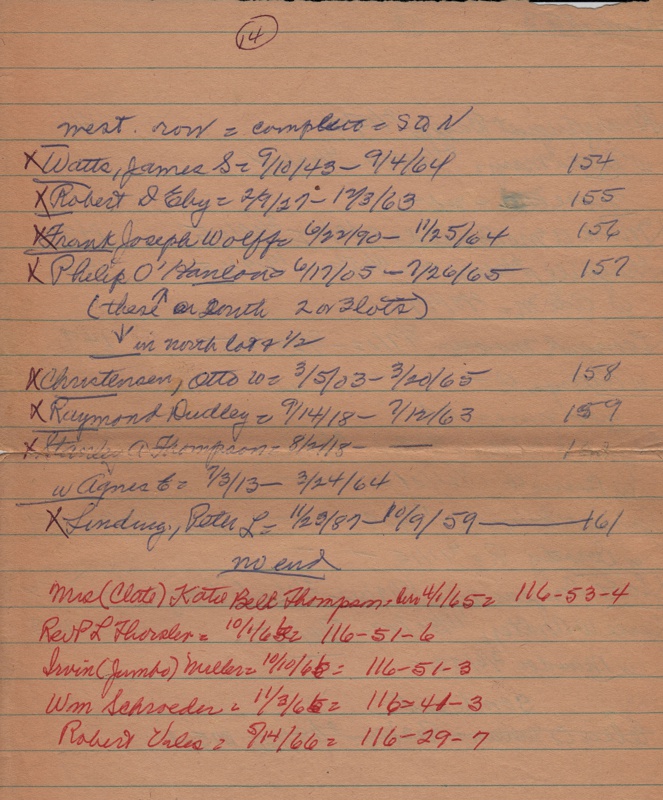 14
west. row = complete = S to N
X Watts, James S = 9/10/43 - 9/4/64 154
X Robert D Eby = 2/9/27 - 12/3/63 155
X Frank Joseph Wolff = 6/22/90 - 11/25/64 156
X Philip O'Hanlon 6/17/05 - 7/26/65 157
(these on South 2 or 3 lots)
in north lot + 1/2
X Christensen, Otto W = 3/5/03 - 3/20/65 158
X Raymond Dudley = 9/14/18 - 7/12/63 159
X Stanley A Thompson = 8/2/18 - —
w Agnes E = 7/3/13 - 3/24/64
X Peter L = 11/29/87 - 10/9/59 — 161
no end
Mrs (Clate) Katie Bell Thompson = 4/1/65 = 116-53-4
Rev P L Thorsler = 10/1/65 = 116-51-6
Irvin (Jumbo) Miller = 10/10/65 = 116-51-3
Wm Schroeder = 11/3/65 = 116-41-3
Robert = 5/14/66 = 116-29-7